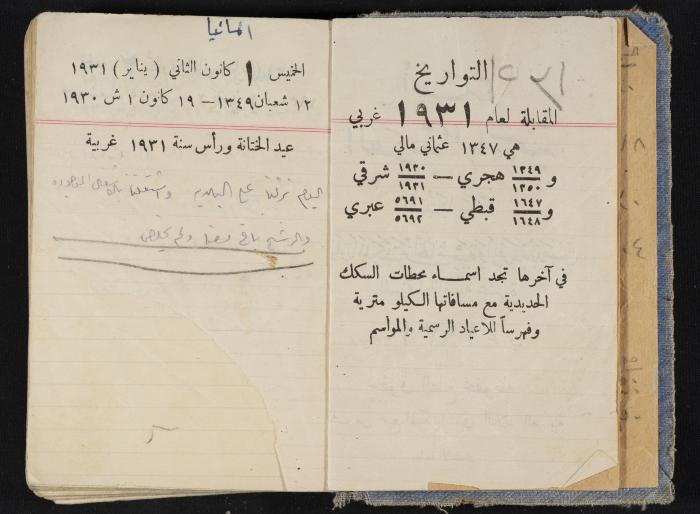 التواريخ
المقابلة لعام ١٩٣١ غربي
هي ١٣٤٧ عثماني مالي
و ١٣٤٩/١٣٥٠ هجري — ١٩٣٠/١٩٣١ شرقي
و ١٦٤٧/١٦٤٨ قبطي — ٥٦٩١/٥٦٩٢ عبري
في آخرها تجد اسماء محطات السكك
الحديدية مع مسافاتها الكيلو مترية
وفهرساً للاعياد الرسمية والمواسم
المانيا
الخميس ١ كانون الثاني ( يناير ) ١٩٣١
١٢ شعبان ١٣٤٩ – ١٩ كانون ١ ش ١٩٣٠
عيد الختانة ورأس سنة ١٩٣١ غربية
اليوم نزلنا